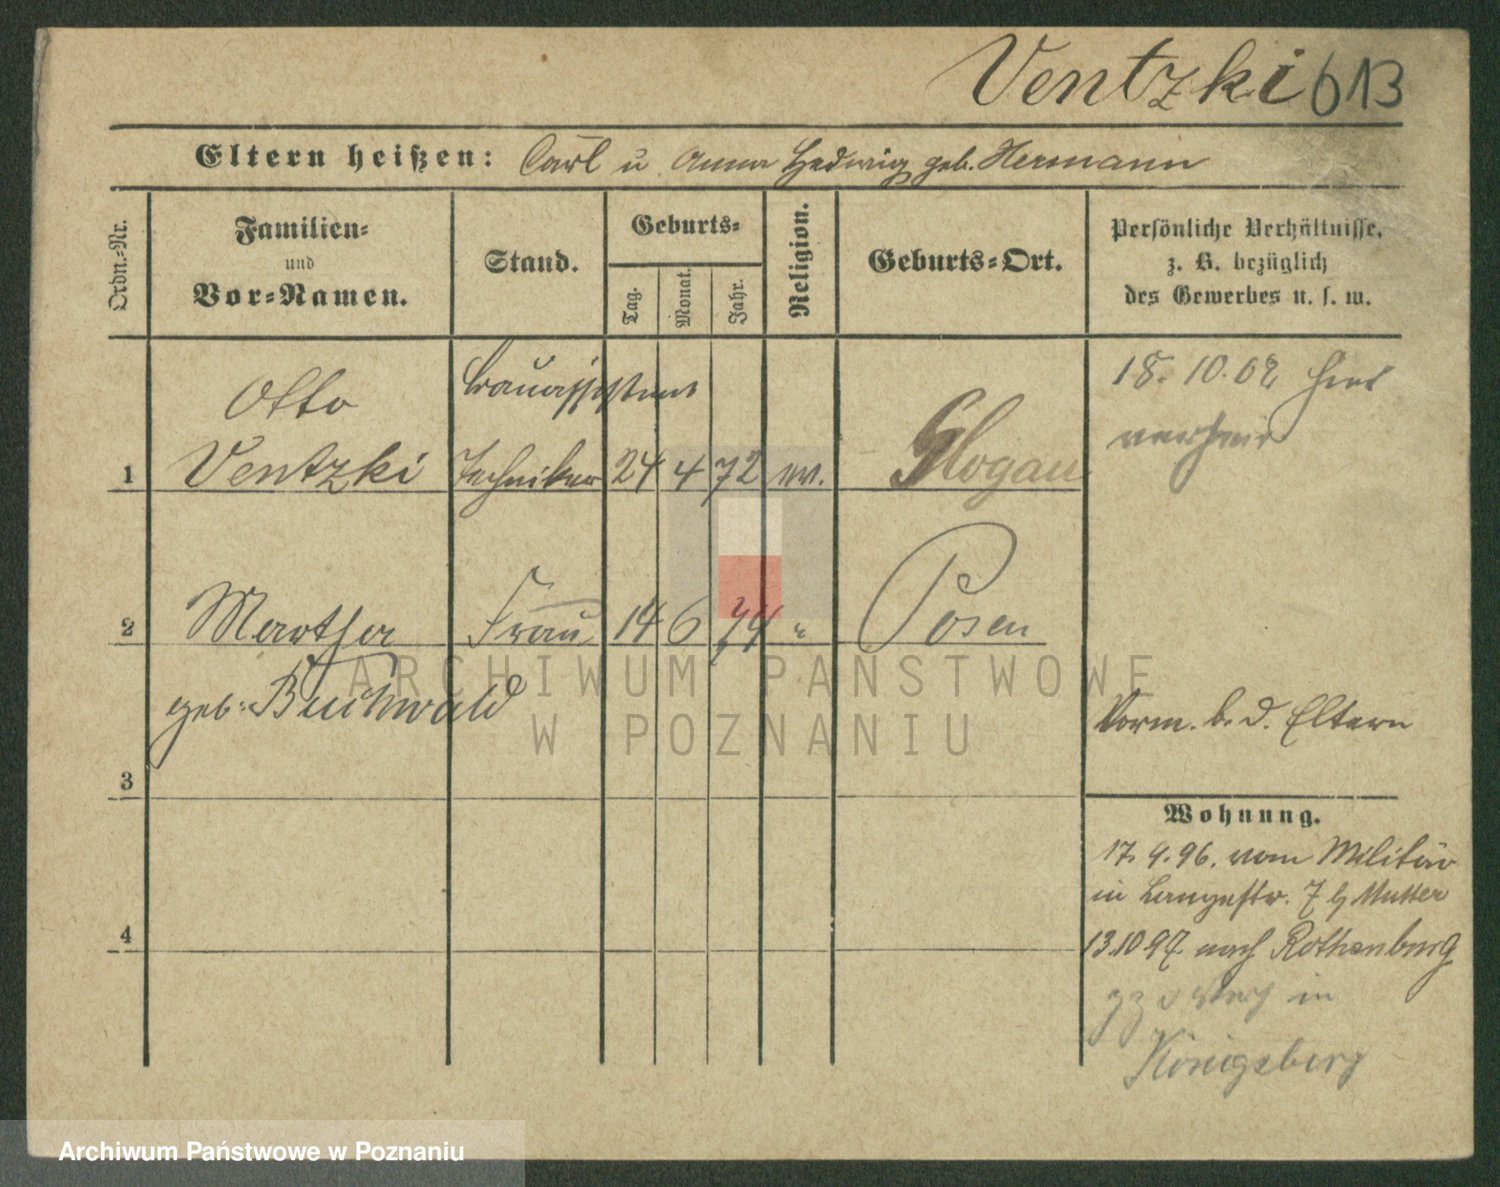 Ventzki 613
Eltern heißen: Carl u. Anna Hedwig geb. Hermann
Ordn.-Nr.
Familien-
und
Vor-Namen.
Stand.
Geburts-
Tag.
Monat.
Jahr.
Religion.
Geburts-Ort.
Persönliche Verhältnisse,
z. B. bezüglich
des Gewerbes u. s. w.
Otto Bauassistent 18. 10. 02 hier
1 Ventzki Techniker 24 4 72 ev. Glogau
2 Martha Frau 14 6 74 " Posen
geb. Buchwald
Vorm. b. d. Eltern
3
Wohnung.
17. 9. 96. vom Militär
in Langestr. 7 b/ Mutter
4
13.10 97. nach Rothenburg
in
Königsberg
ARCHIWUM PAŃSTWOWE
W POZNANIU
Archiwum Państwowe w Poznaniu